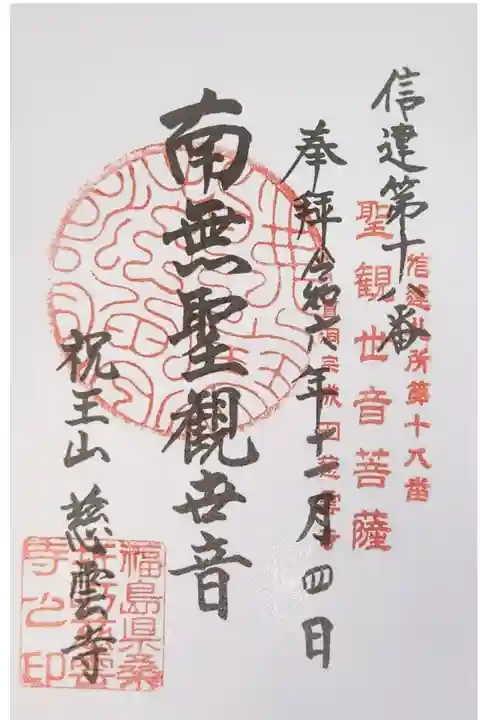 信達第十八番
奉拝 令和六年十一月四日
南無聖観世音
祝王山 慈雲寺
信達札所第十八番
聖観世音菩薩
福島県桑
折町慈雲
寺之印